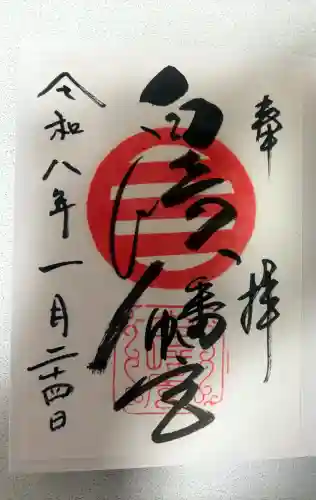 奉拝
白濱八幡宮
令和八年一月二十四日